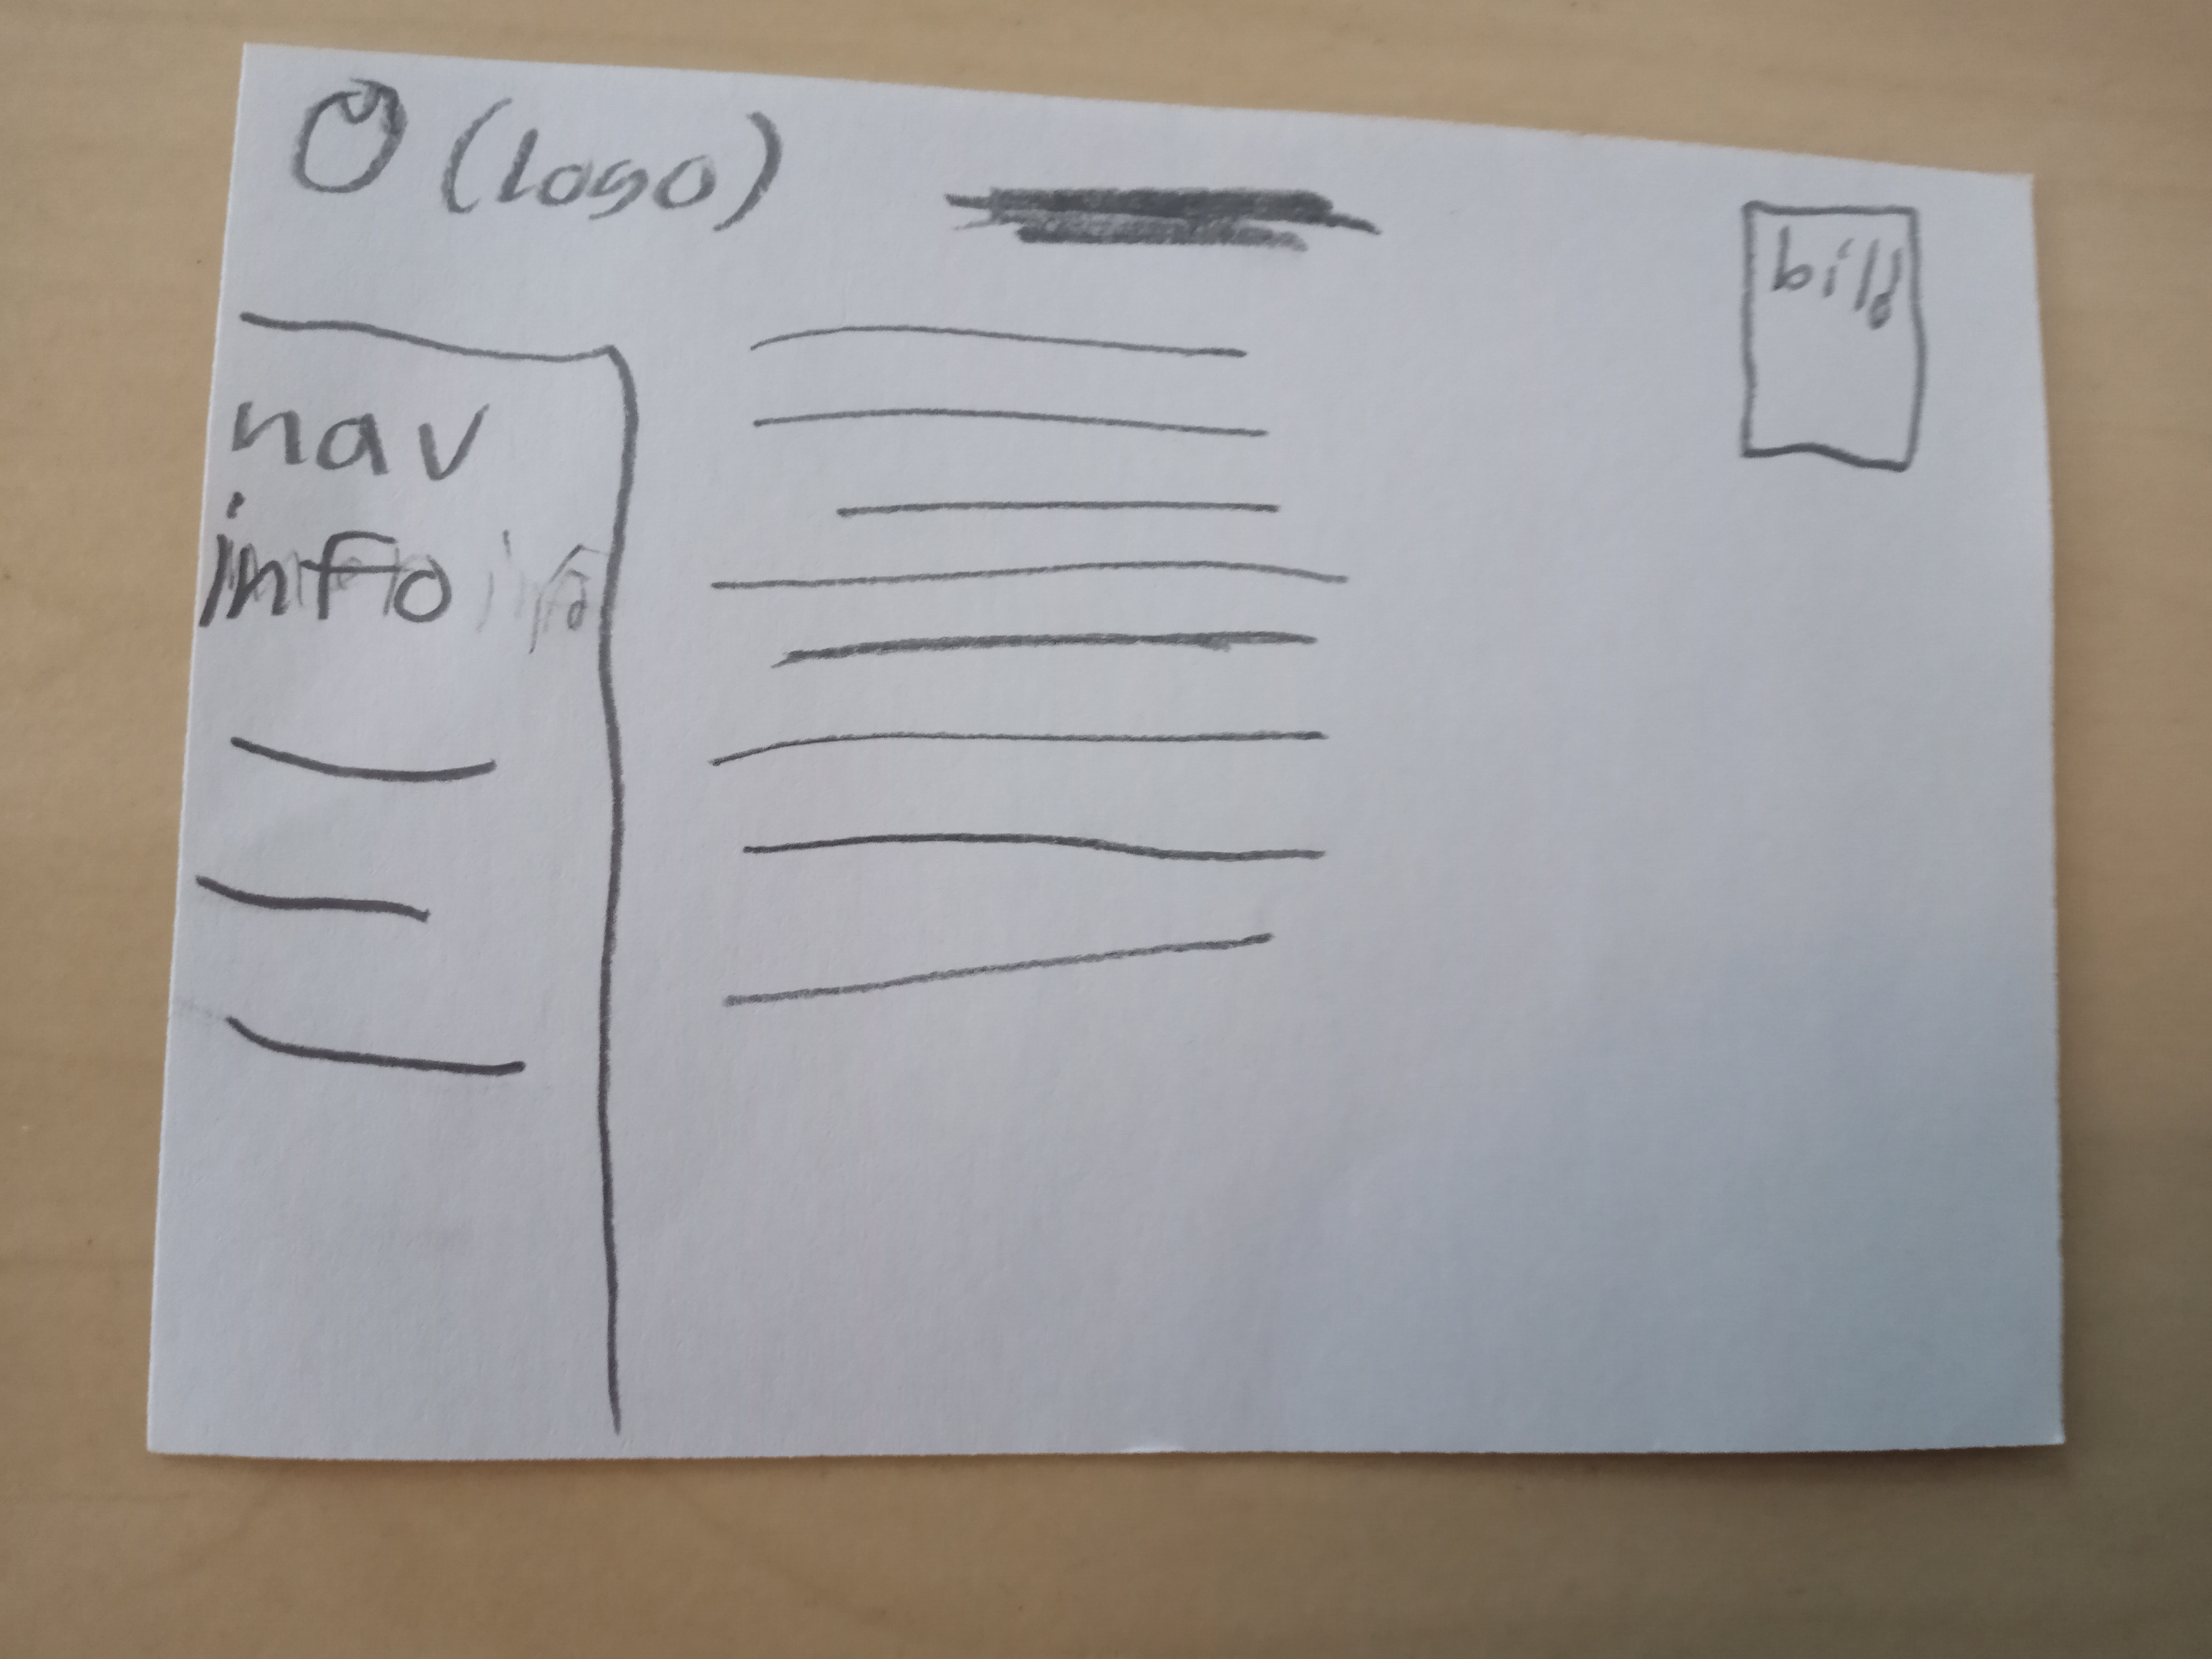 (logo)
bild
nav
info